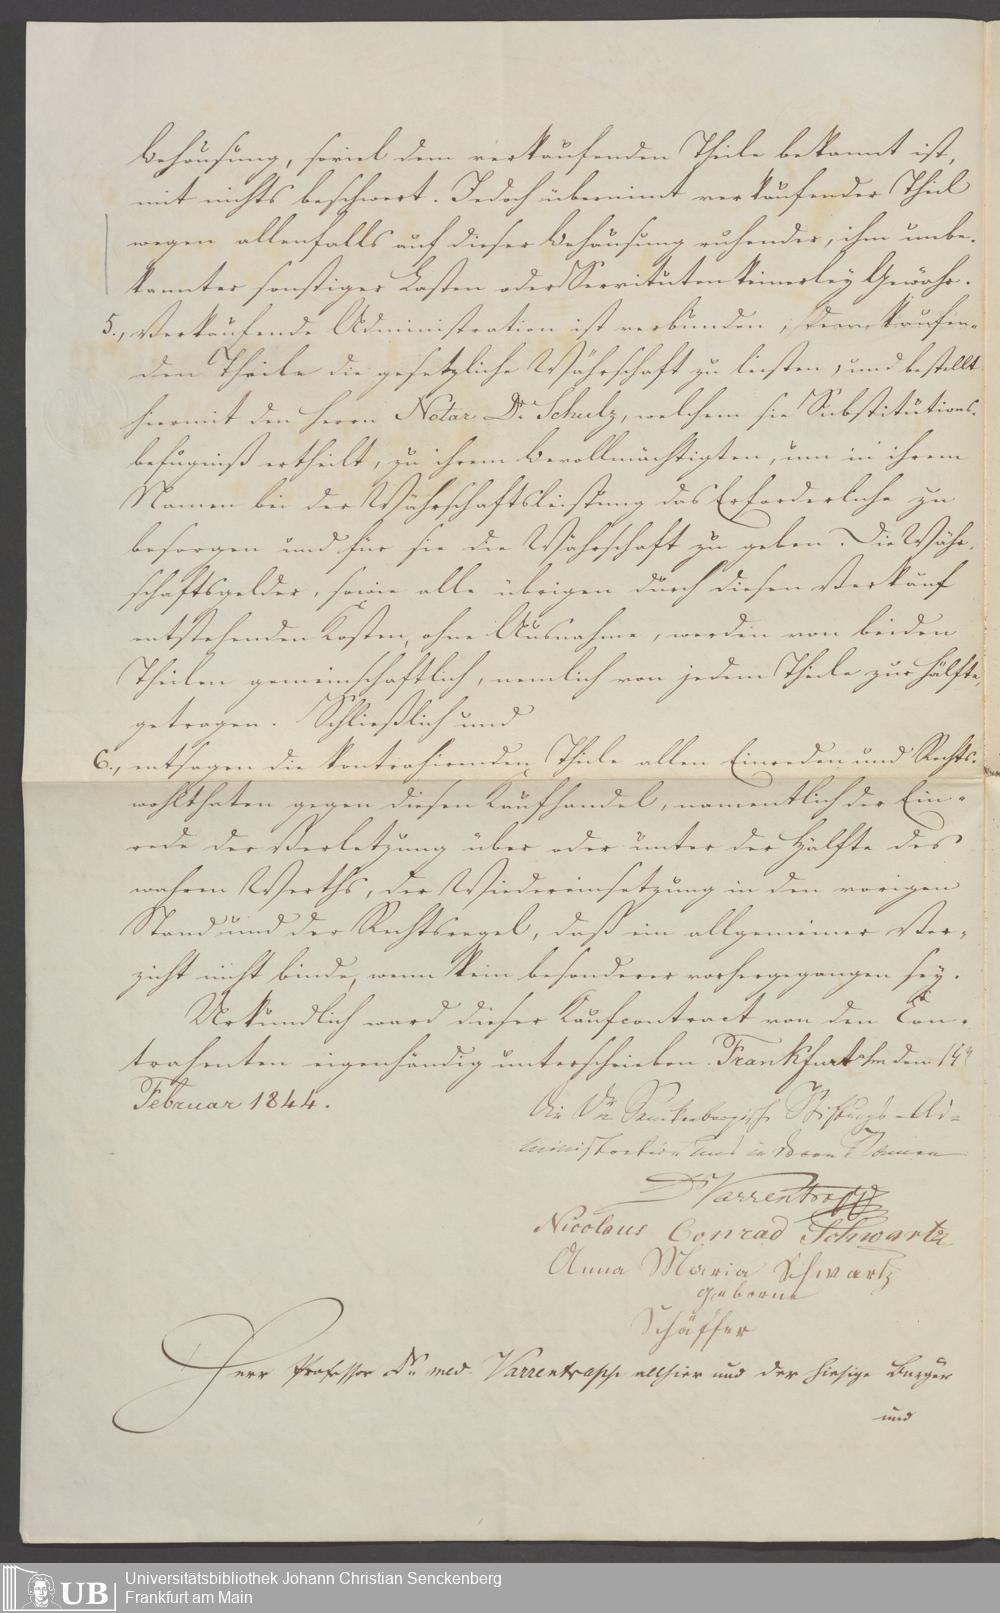 Behausung, soviel dem verkaufenden Theile bekannt ist,
mit nichts beschwert. Jedoch übernimt verkaufender Theil
wegen allenfalls auf dieser Behausung ruhender, ihm unbe-
kannter sonstiger Lasten oder Servituten keinerley Gewähr.
5., Verkaufende Administration ist verbunden, dem kaufen-
den Theile die gesetzliche Währschaft zu leisten, und bestellt
hiermit den Herrn Notar Dr. Schulz, welchem sie Substitutions-
befugniß ertheilt, zu ihrem Bevollmächtigten, um in ihrem
Namen bei der Währschaftsleistung das Erforderliche zu
besorgen und für sie die Währschaft zu geben. Die Währ-
schaftsgelder, sowie alle übrigen durch diesen Verkauf
entstehenden Kosten, ohne Ausnahme, werden von beiden
Theilen gemeinschaftlich, nemlich von jedem Theile zur Hälfte,
getragen. Schließlich und
6., entsagen die kontrahirenden Theile allen Einreden und Rechts-
wohlthaten gegen diesen Kaufhandel, namentlich der Ein-
rede der Verletzung über oder unter der Hälfte des
wahren Werths, der Wiedereinsetzung in den vorigen
Stand und der Rechtsregel, daß ein allgemeiner Ver-
zicht nicht binde, wenn kein besonderer vorhergegangen sey.
Urkundlich ward dieser Kaufcontract von den Con-
trahenten eigenhändig unterschrieben. Frankfurt a/m den 14n
Februar 1844.
Die Dr. Senckenbergische Stiftungs-Ad-
ministration und in deren Namen
Dr Varrentrapp
Nicolaus Conrad Schwartz
Anna Maria Schwartz
geborne
Schäffer
Herr Professor Dr. med. Varrentrapp allhier und der hiesige Burger
und
UB
Universitätsbibliothek Johann Christian Senckenberg
Frankfurt am Main